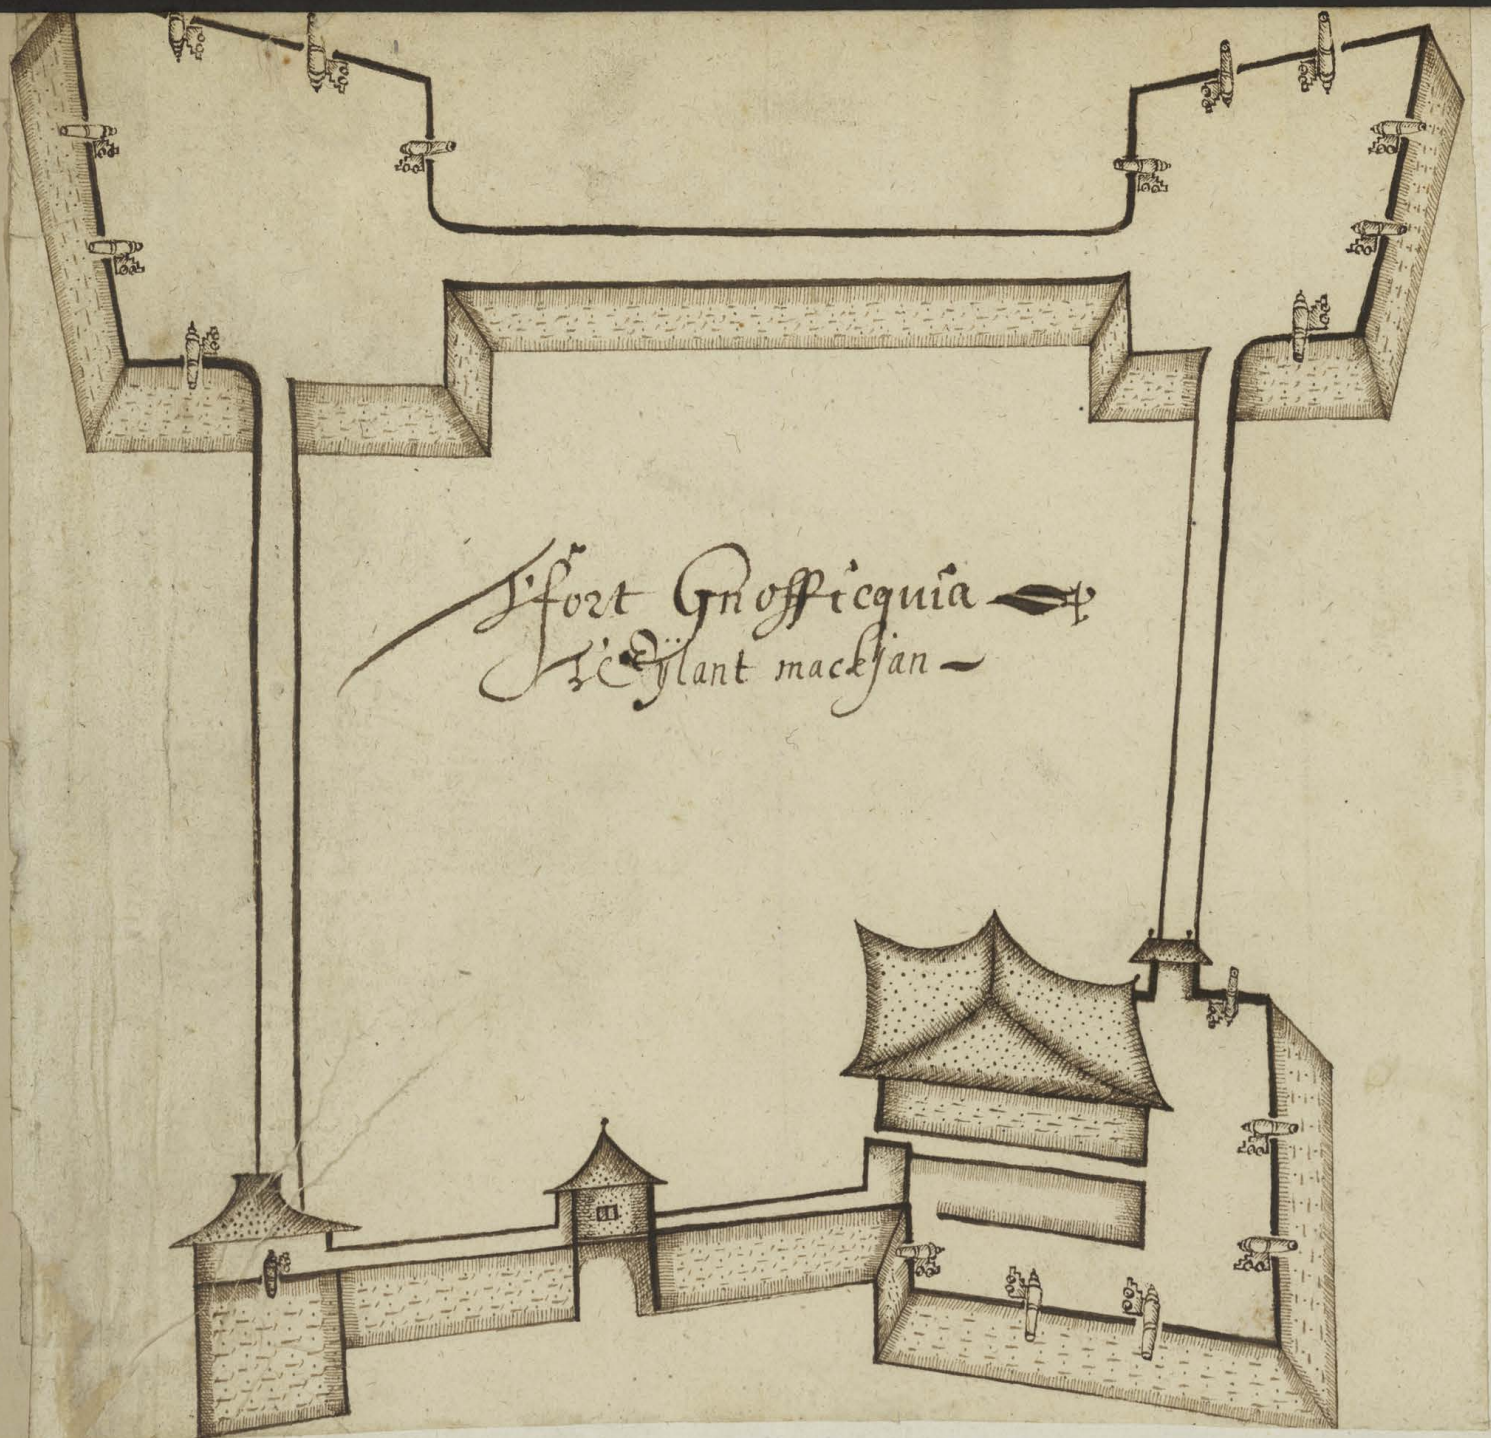 t'fort Gnofficquia
t'Eÿlant mackjan